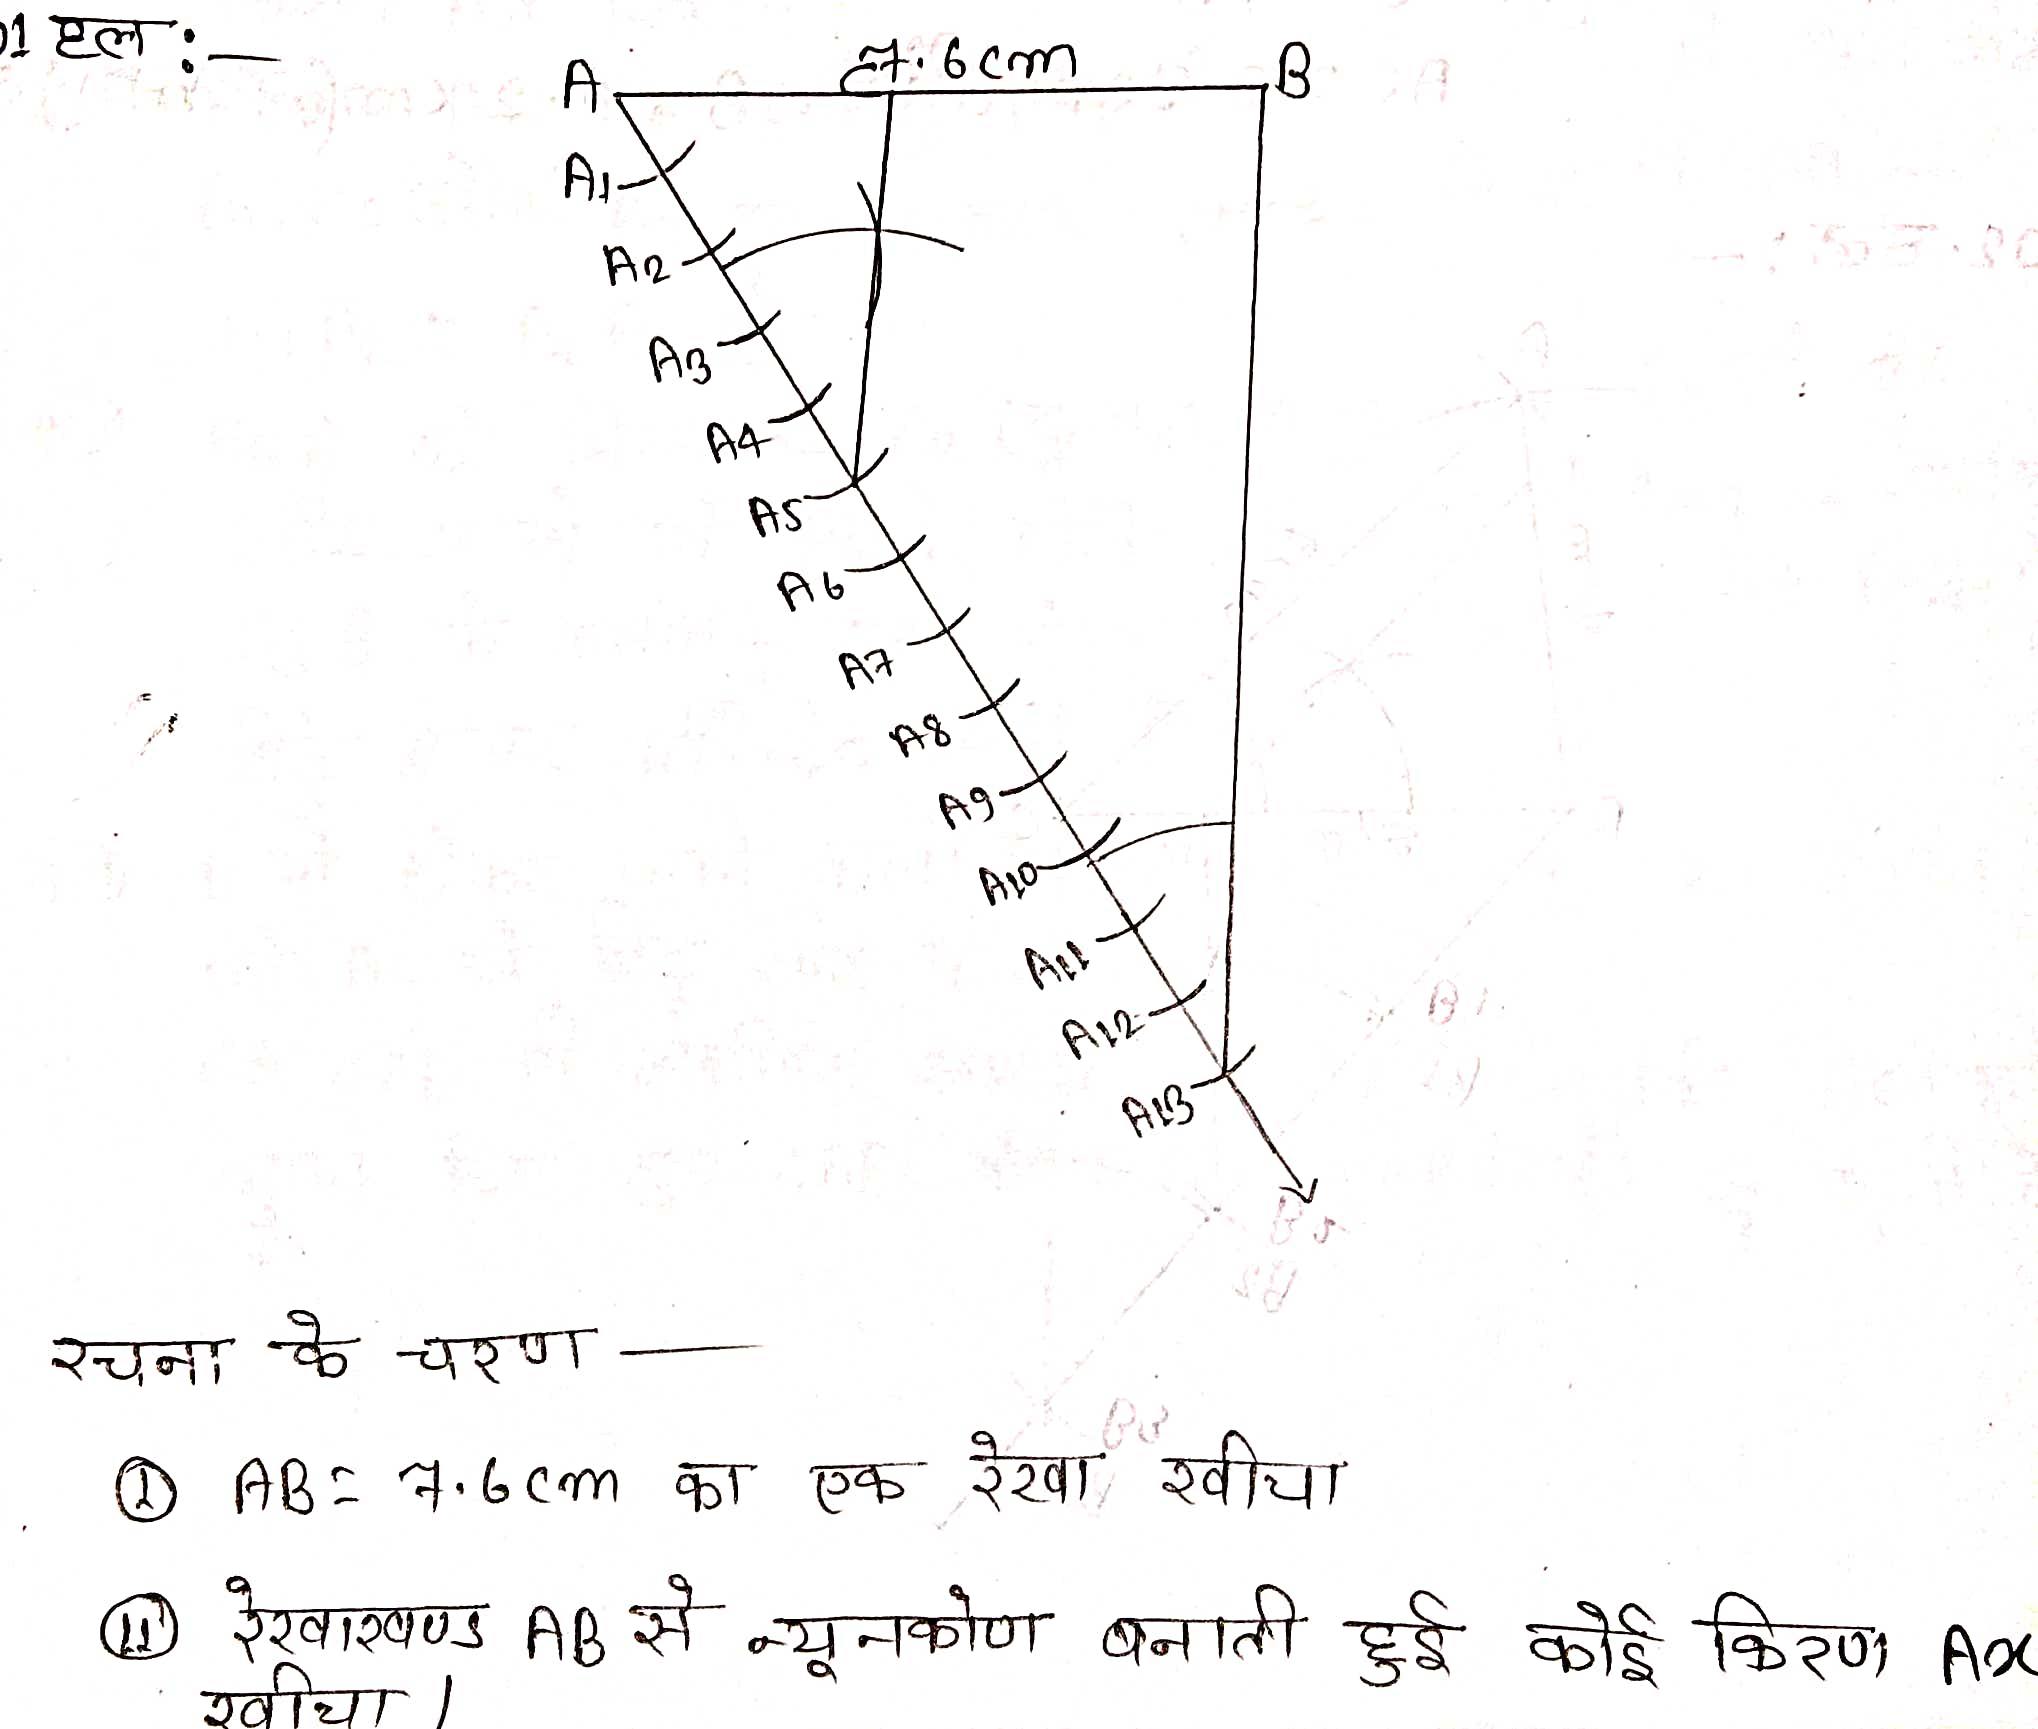 01 हल :—
7.6cm
A B
A1
A2
A3
A4
A5
A6
A7
A8
A9
A10
A11
A12
A13
रचना के चरण —
(I) AB= 7.6cm का एक रेखा खीचा
(II) रेखाखण्ड AB से न्यूनकोण बनाती हुई कोई किरण Ax
खीचा।